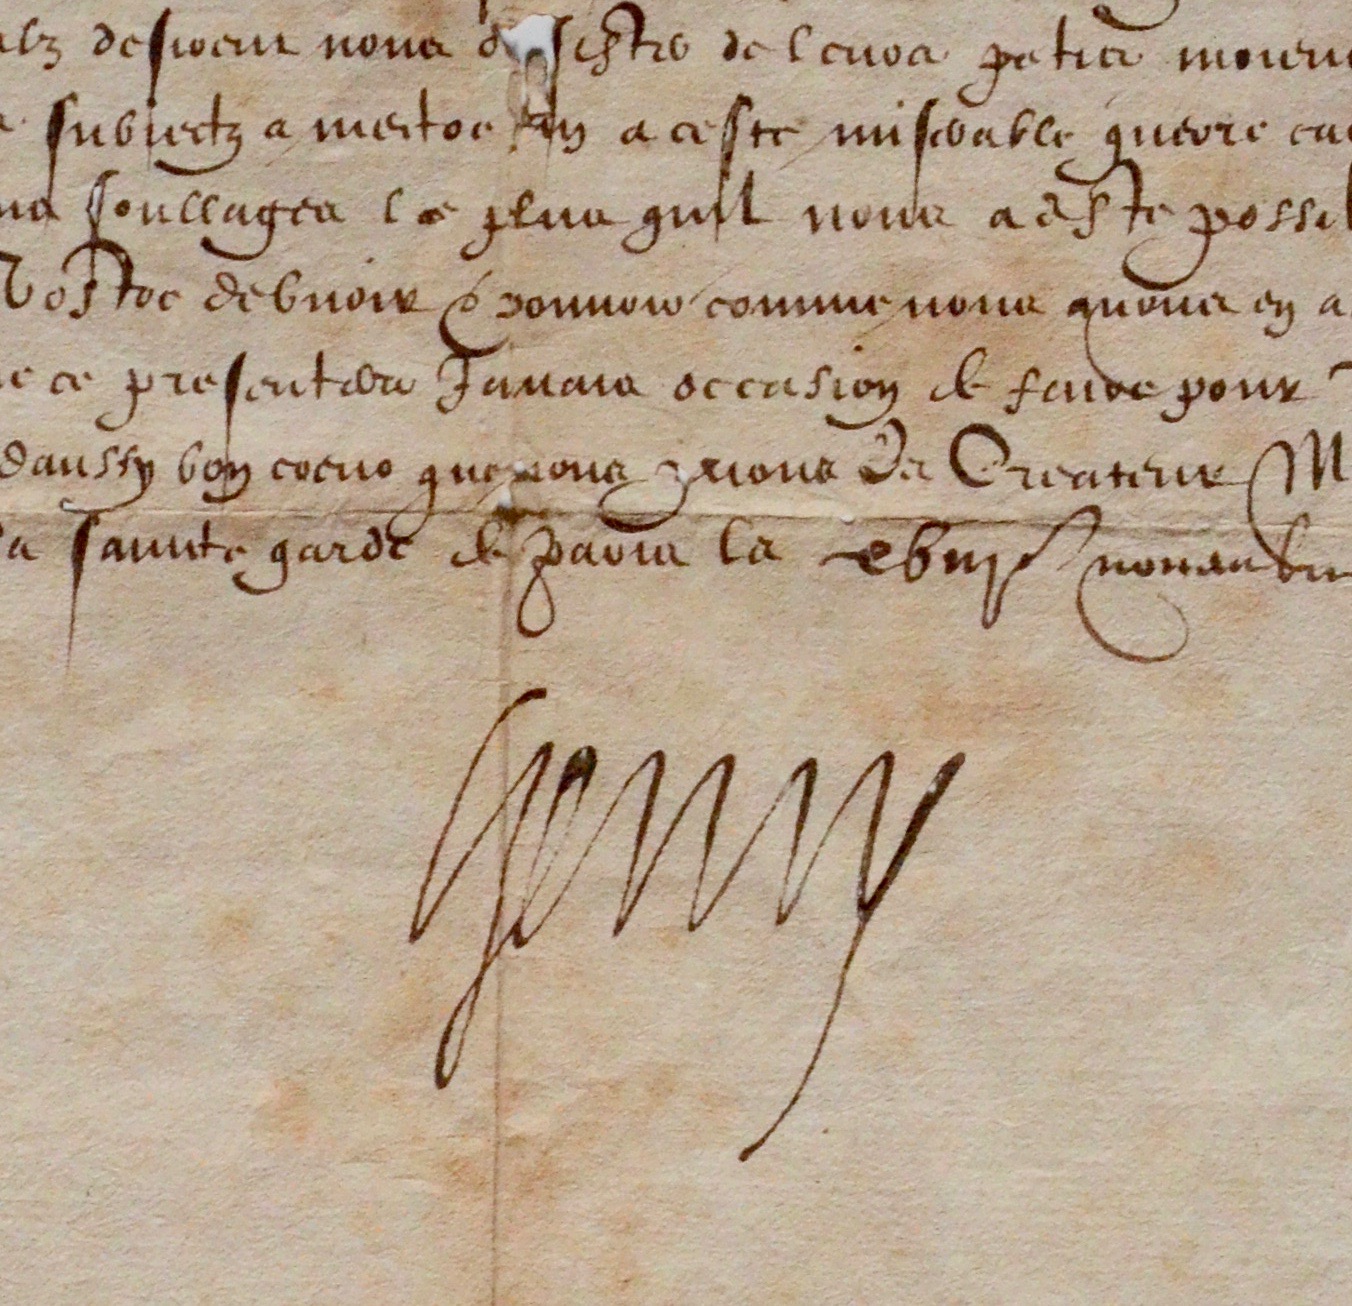 desirent nous de leurs petis moiens
subiectz a mectre fin a ceste miserable guerre
soullager le plus quil nous a este possible
vostre debvoir & pouvoir comme nous avons en
ce presentera Jamais occasion de faire pour
daussy bon coeur que nous prions Le Createur
saincte garde de Paris le novembre
Henry